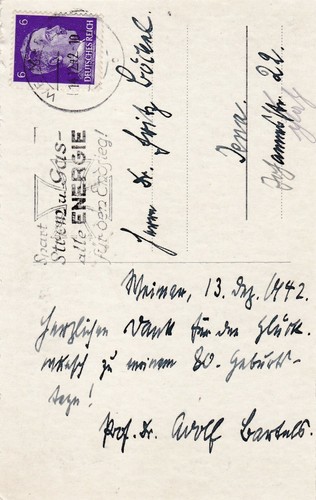 6
6
DEUTSCHES REICH
Spart
Strom u. Gas-
alle ENERGIE
für den Endsieg!
Herrn Dr. Fritz
Jena.
Johannisstr. 22.
Weimar, 13. Dez. 1942.
Herzlichen Dank für den Glück-
wunsch zu meinem 80. Geburts-
tage!
Prof. Dr. Adolf Bartels.